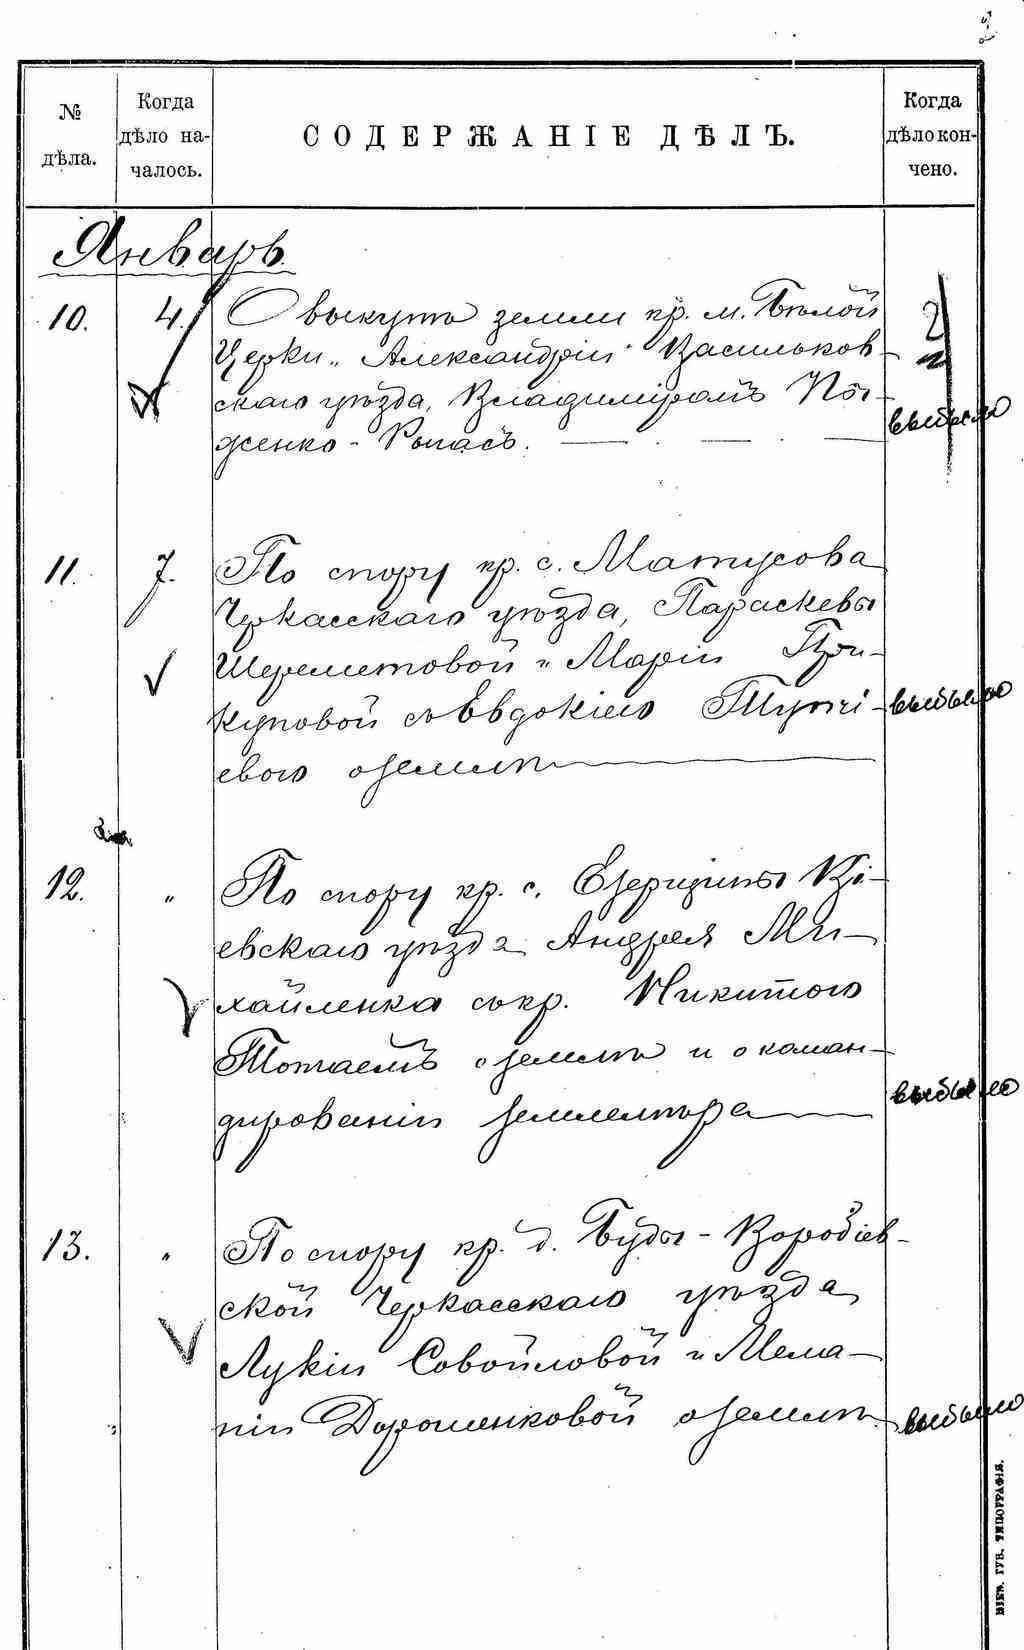 2
№ дѣла.
Когда дѣло началось.
СОДЕРЖАНІЕ ДѢЛЪ.
Когда дѣло кончено.
Январь.
10. 4. О выкупѣ земли кр. м. Бѣлой
Церкви „Александріи“ Васильков-
скаго уѣзда, Владиміромъ
женко-
выбыло
11. 7. По спору кр. с. Матусова
Черкасскаго уѣзда, Параскевы
Шереметовой и Маріи При-
куповой съ Евдокіею
евою о землѣ
выбыло
12. „ По спору кр. с. Езерщины Кі-
евскаго уѣзда Андрея Ми-
хайленка съ кр. Никитою
о землѣ и о коман-
дированіи землемѣра
выбыло
13. „ По спору кр. д. Буды-Воробіев-
ской Черкасскаго уѣзда
Лукіи Совойловой и Мела-
ніи Дорошенковой о землѣ.
выбыло
КІЕВ. ГУБ. ТИПОГРАФІЯ.